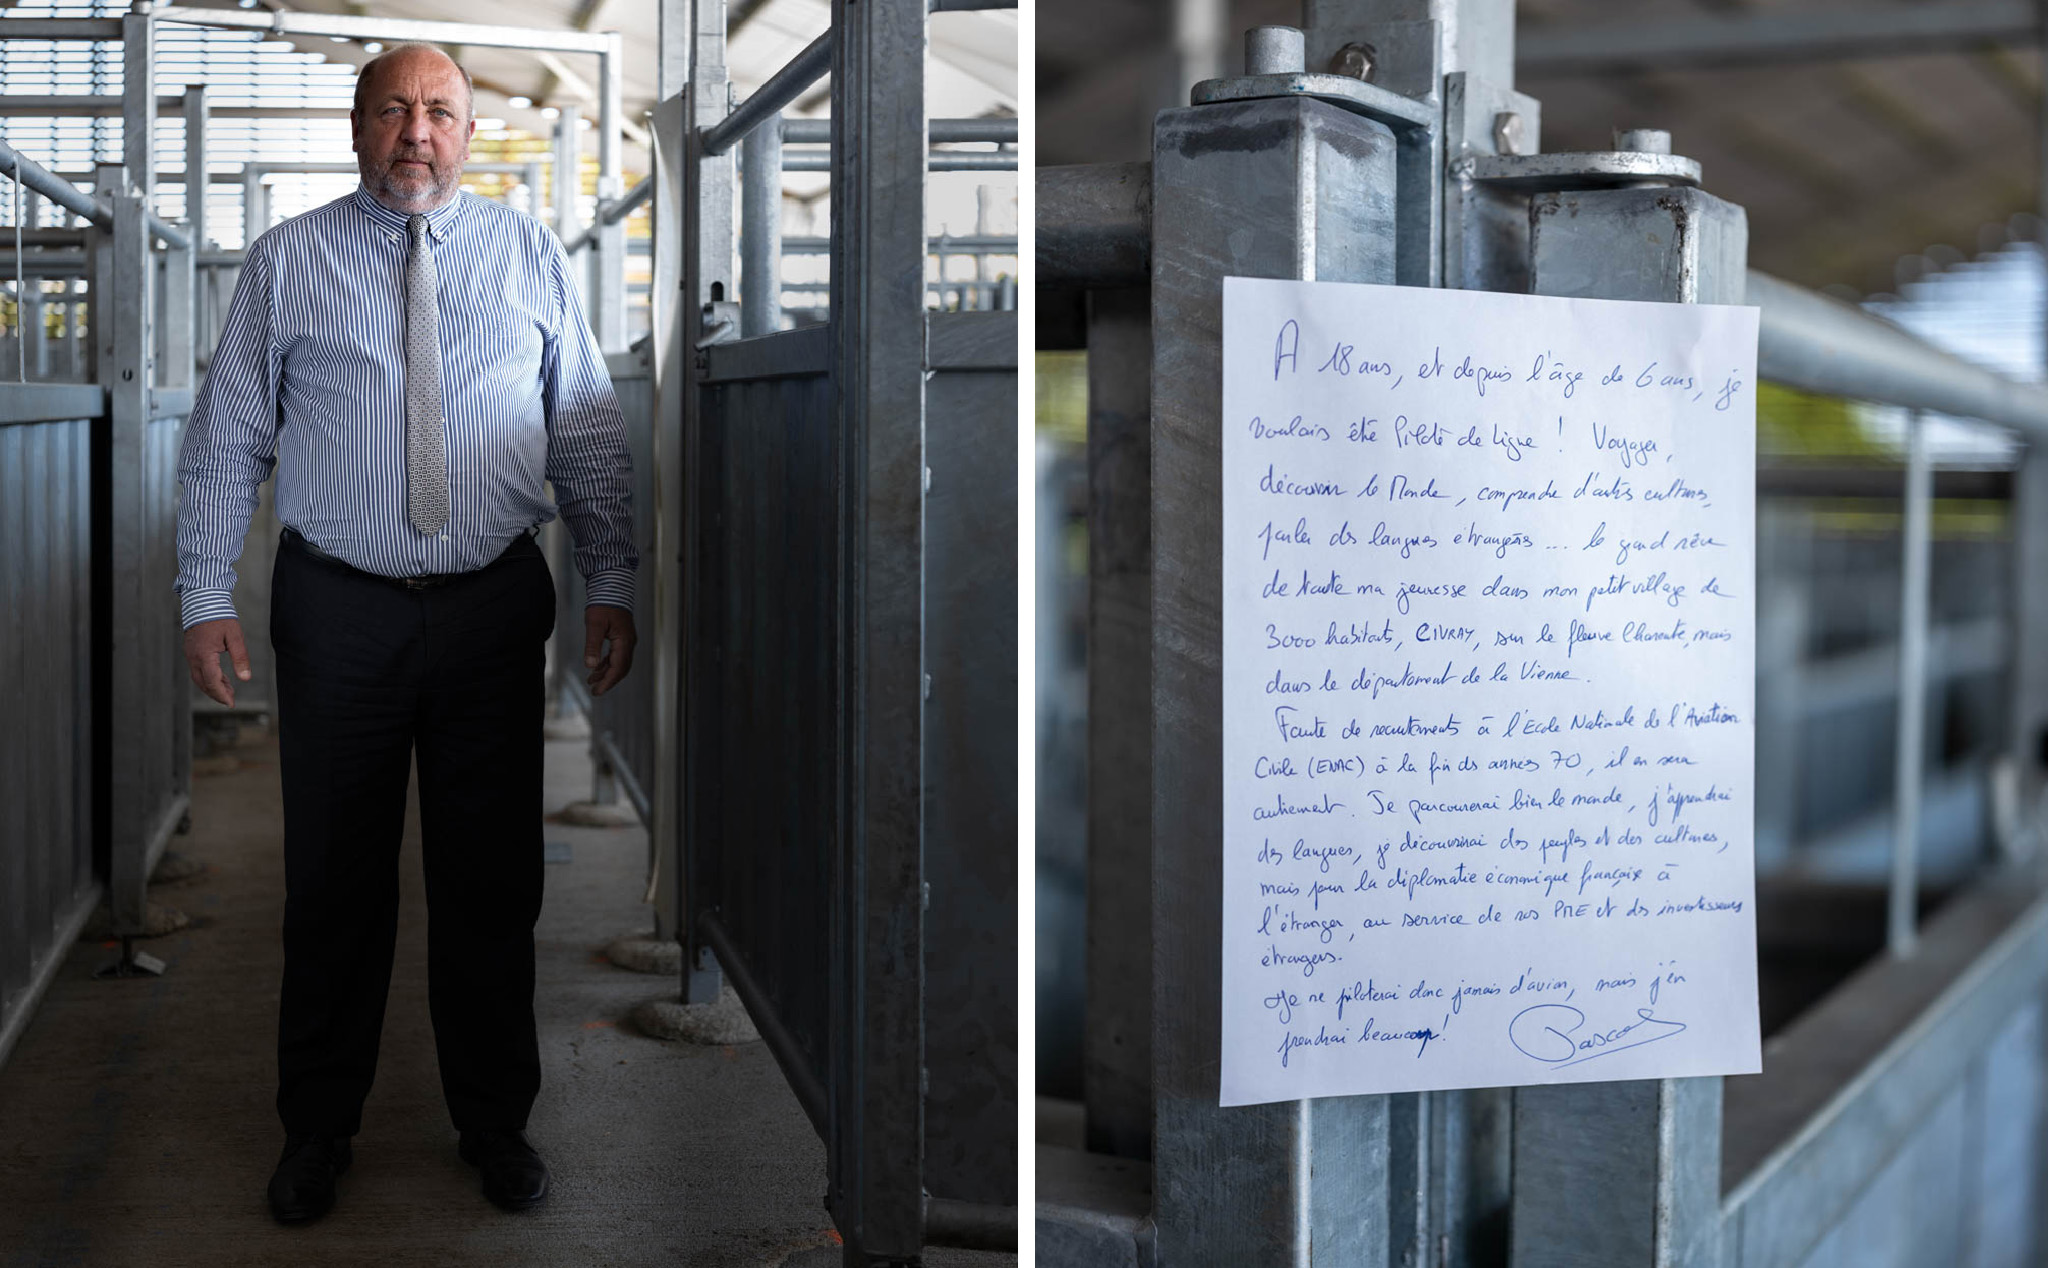 A 18 ans, et depuis l'âge de 6 ans, je
voulais être Pilote de Ligne ! Voyager,
découvrir le Monde, comprendre d'autres cultures,
parler des langues étrangères ... le grand rêve
de toute ma jeunesse dans mon petit village de
3000 habitants, CIVRAY, sur le fleuve Charente, mais
dans le département de la Vienne.
Faute de recrutements à l'Ecole Nationale de l'Aviation
Civile (ENAC) à la fin des années 70, il en sera
autrement. Je parcourerai bien le monde, j'apprendrai
des langues, je découvrirai des peuples et des cultures,
mais pour la diplomatie économique française à
l'étranger, au service de nos PME et des investisseurs
étrangers.
Je ne piloterai donc jamais d'avion, mais j'en
prendrai beaucoup !
Pascal